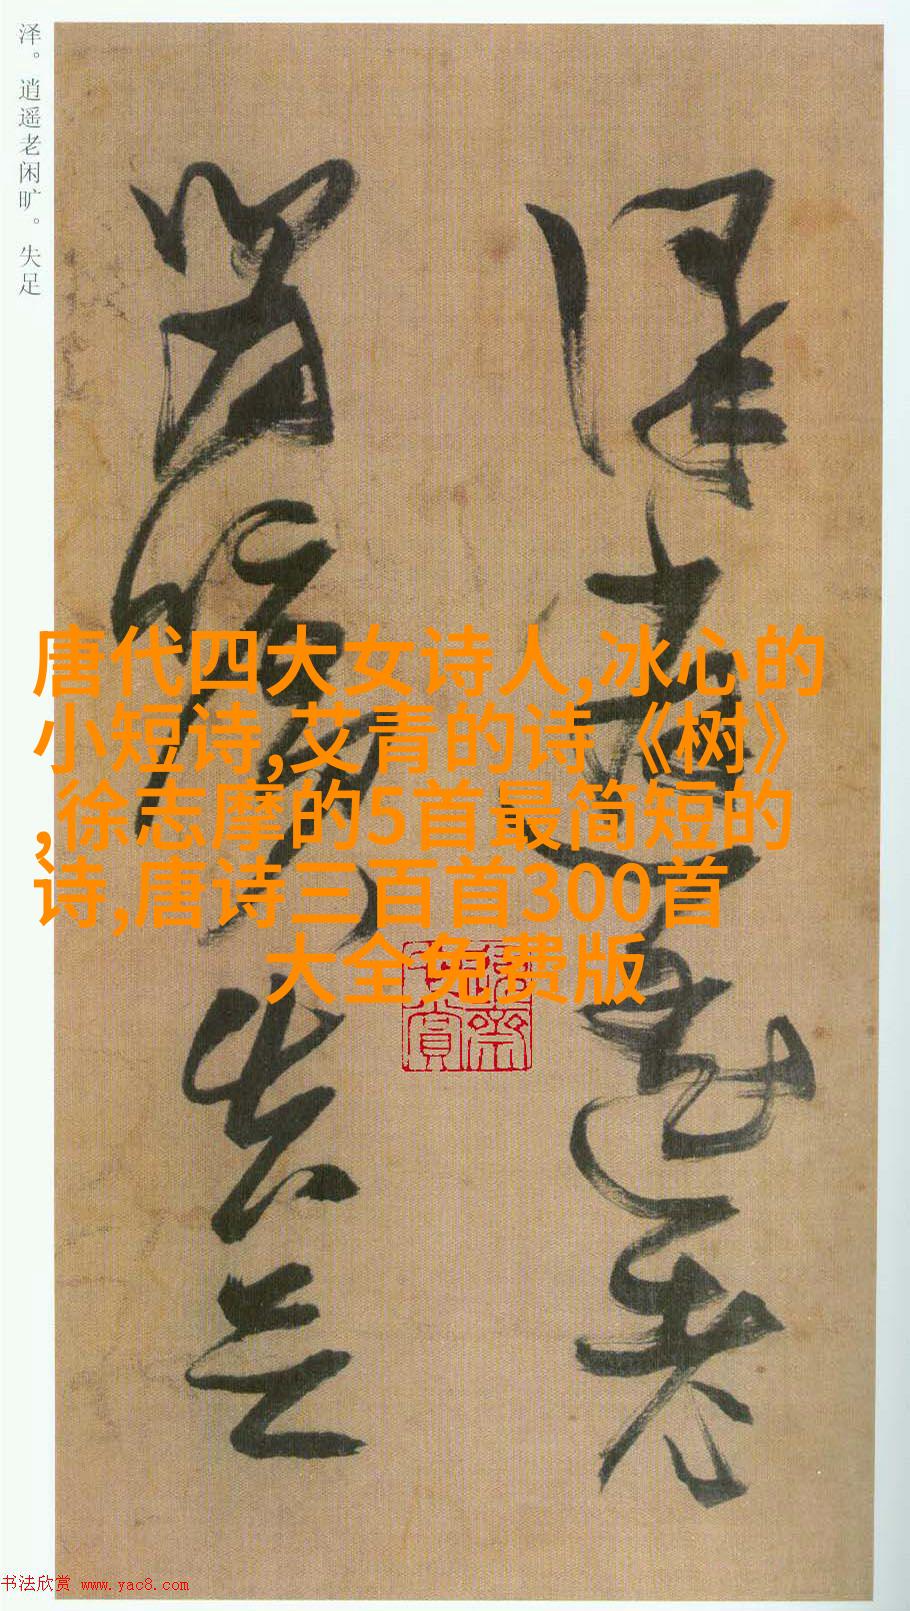 泽。逍遥老闲旷。失足
泽逍遥老
闲旷失足
唐代四大女诗人,冰心的
小短诗,艾青的诗《树》
,徐志摩的5首最简短的
诗,唐诗三百首300首
大全免费版
书法欣赏 www.yac8.com